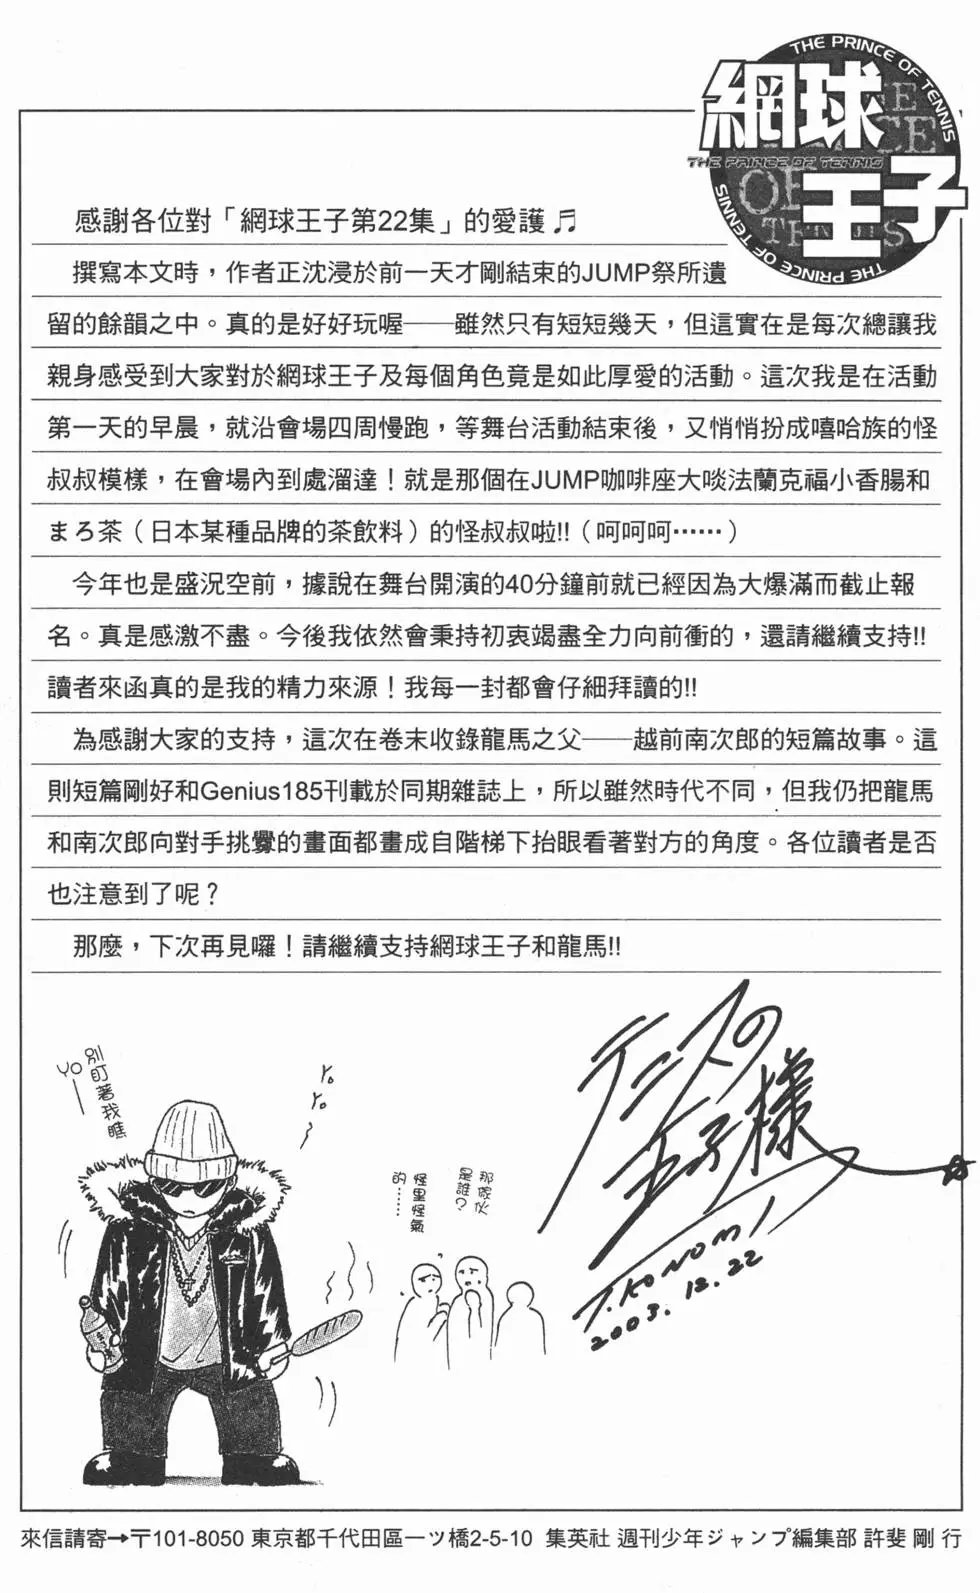 THE PRINCE OF TENNIS
網球
THE PRINCE OF TENNIS
王子
THE PRINCE OF TENNIS
感謝各位對「網球王子第22集」的愛護♬
撰寫本文時，作者正沈浸於前一天才剛結束的JUMP祭所遺
留的餘韻之中。真的是好好玩喔──雖然只有短短幾天，但這實在是每次總讓我
親身感受到大家對於網球王子及每個角色竟是如此厚愛的活動。這次我是在活動
第一天的早晨，就沿會場四周慢跑，等舞台活動結束後，又悄悄扮成嘻哈族的怪
叔叔模樣，在會場內到處溜達！就是那個在JUMP咖啡座大啖法蘭克福小香腸和
まろ茶（日本某種品牌的茶飲料）的怪叔叔啦!!（呵呵呵……）
今年也是盛況空前，據說在舞台開演的40分鐘前就已經因為大爆滿而截止報
名。真是感激不盡。今後我依然會秉持初衷竭盡全力向前衝的，還請繼續支持!!
讀者來函真的是我的精力來源！我每一封都會仔細拜讀的!!
為感謝大家的支持，這次在卷末收錄龍馬之父──越前南次郎的短篇故事。這
則短篇剛好和Genius185刊載於同期雜誌上，所以雖然時代不同，但我仍把龍馬
和南次郎向對手挑釁的畫面都畫成自階梯下抬眼看著對方的角度。各位讀者是否
也注意到了呢？
那麼，下次再見囉！請繼續支持網球王子和龍馬!!
別盯著我瞧
YO──
Yo
Yo
那傢伙
是誰？
怪里怪氣
的……
テニスの
王子様
T.KONOMI
2003.12.22
來信請寄→〒101-8050 東京都千代田區一ツ橋2-5-10 集英社 週刊少年ジャンプ編集部 許斐 剛 行